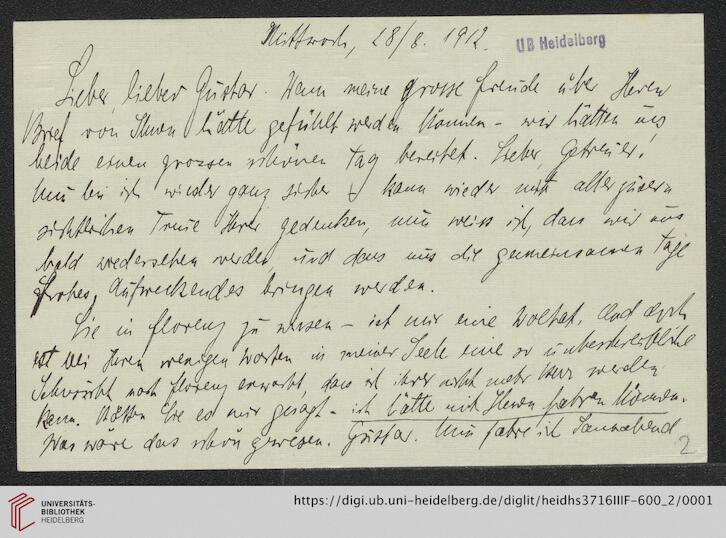 Mittwoch, 28/8. 1912.
UB Heidelberg
Lieber, lieber Gustav. Wenn meine grosse Freude über Ihren
Brief von Ihnen hätte gefühlt werden können - wir hätten uns
beide einen grossen schönen Tag bereitet. Lieber, Getreuer!
Nun bin ich wieder ganz sicher & kann wieder mit aller
Treue Ihrer gedenken, nun weiss ich, dass wir uns
bald wiedersehen werden und dass uns die gemeinsamen Tage
Frohes, Aufweckendes bringen werden.
Sie in Florenz zu wissen - ist mir eine Woltat. Und doch
ist bei Ihren wenigen Worten in meiner Seele eine so unbeschreibliche
Sehnsucht nach Florenz erwacht, dass ich ihrer nicht mehr Herr werden
kann. Hätten Sie es mir gesagt - ich hätte mit Ihnen fahren können.
Was wäre das schön gewesen. Gustav. Nun fahre ich Sonnabend
2
UNIVERSITÄTS-
BIBLIOTHEK
HEIDELBERG
https://digi.ub.uni-heidelberg.de/diglit/heidhs3716IIIF-600_2/0001